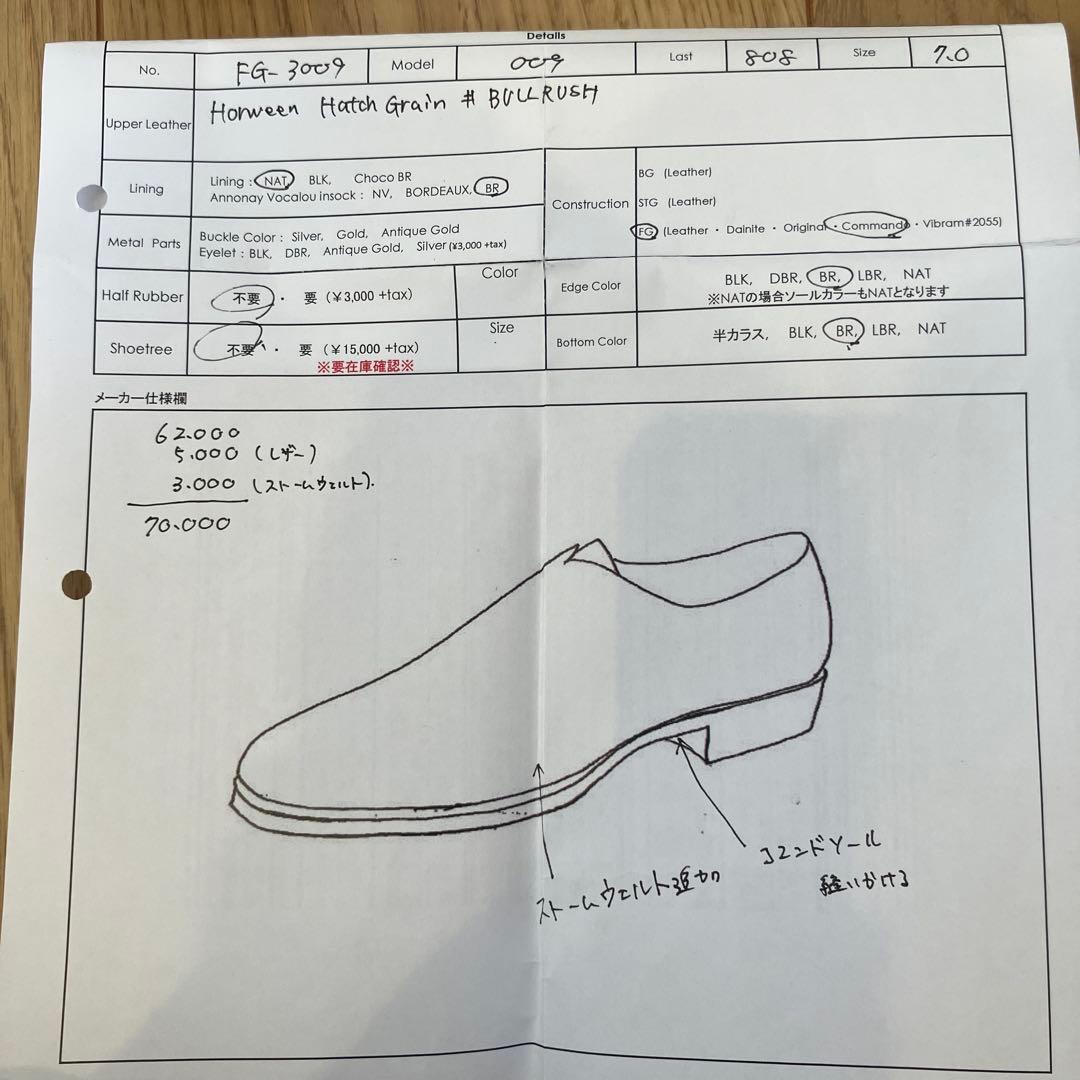 Details
No. FG-3009 Model 009 Last 808 Size 7.0
Upper Leather Horween Hatch Grain # BULLRUSH
Lining
Lining : NAT, BLK, Choco BR
Annonay Vocalou insock : NV, BORDEAUX, BR
Construction
BG (Leather)
STG (Leather)
FG (Leather・Dainite・Original・Commando・Vibram#2055)
Metal Parts
Buckle Color : Silver, Gold, Antique Gold
Eyelet : BLK, DBR, Antique Gold, Silver (¥3,000 +tax)
Half Rubber 不要・ 要 (¥3,000 +tax)
Color
Edge Color BLK, DBR, BR, LBR, NAT
※NATの場合ソールカラーもNATとなります
Shoetree 不要・ 要 (¥15,000 +tax)
※要在庫確認※
Size
Bottom Color 半カラス, BLK, BR, LBR, NAT
メーカー仕様欄
62.000
5.000 (レザー)
3.000 (ストームウェルト).
70.000
ストームウェルト追加
コマンドソール
縫いかける